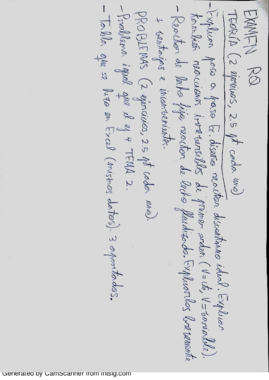 EXAMEN RQ
TEORÍA (2 ejercicios, 2,5 pt cada uno)
- Explicar paso a paso Ec diseño reactor discontinuo ideal. Explicar
también reacciones irreversibles de primer orden (V=cte, V=variable).
- Reactor de lecho fijo, reactor de lecho fluidizado. Explicarlos brevemente
y ventajas e inconvenientes.
PROBLEMAS (2 ejercicios, 2,5 pt cada uno).
- Problema igual que el ej 4 TEMA 2.
- Tabla que se hizo en Excel (mismos datos). 3 apartados.
Generated by CamScanner from intsig.com